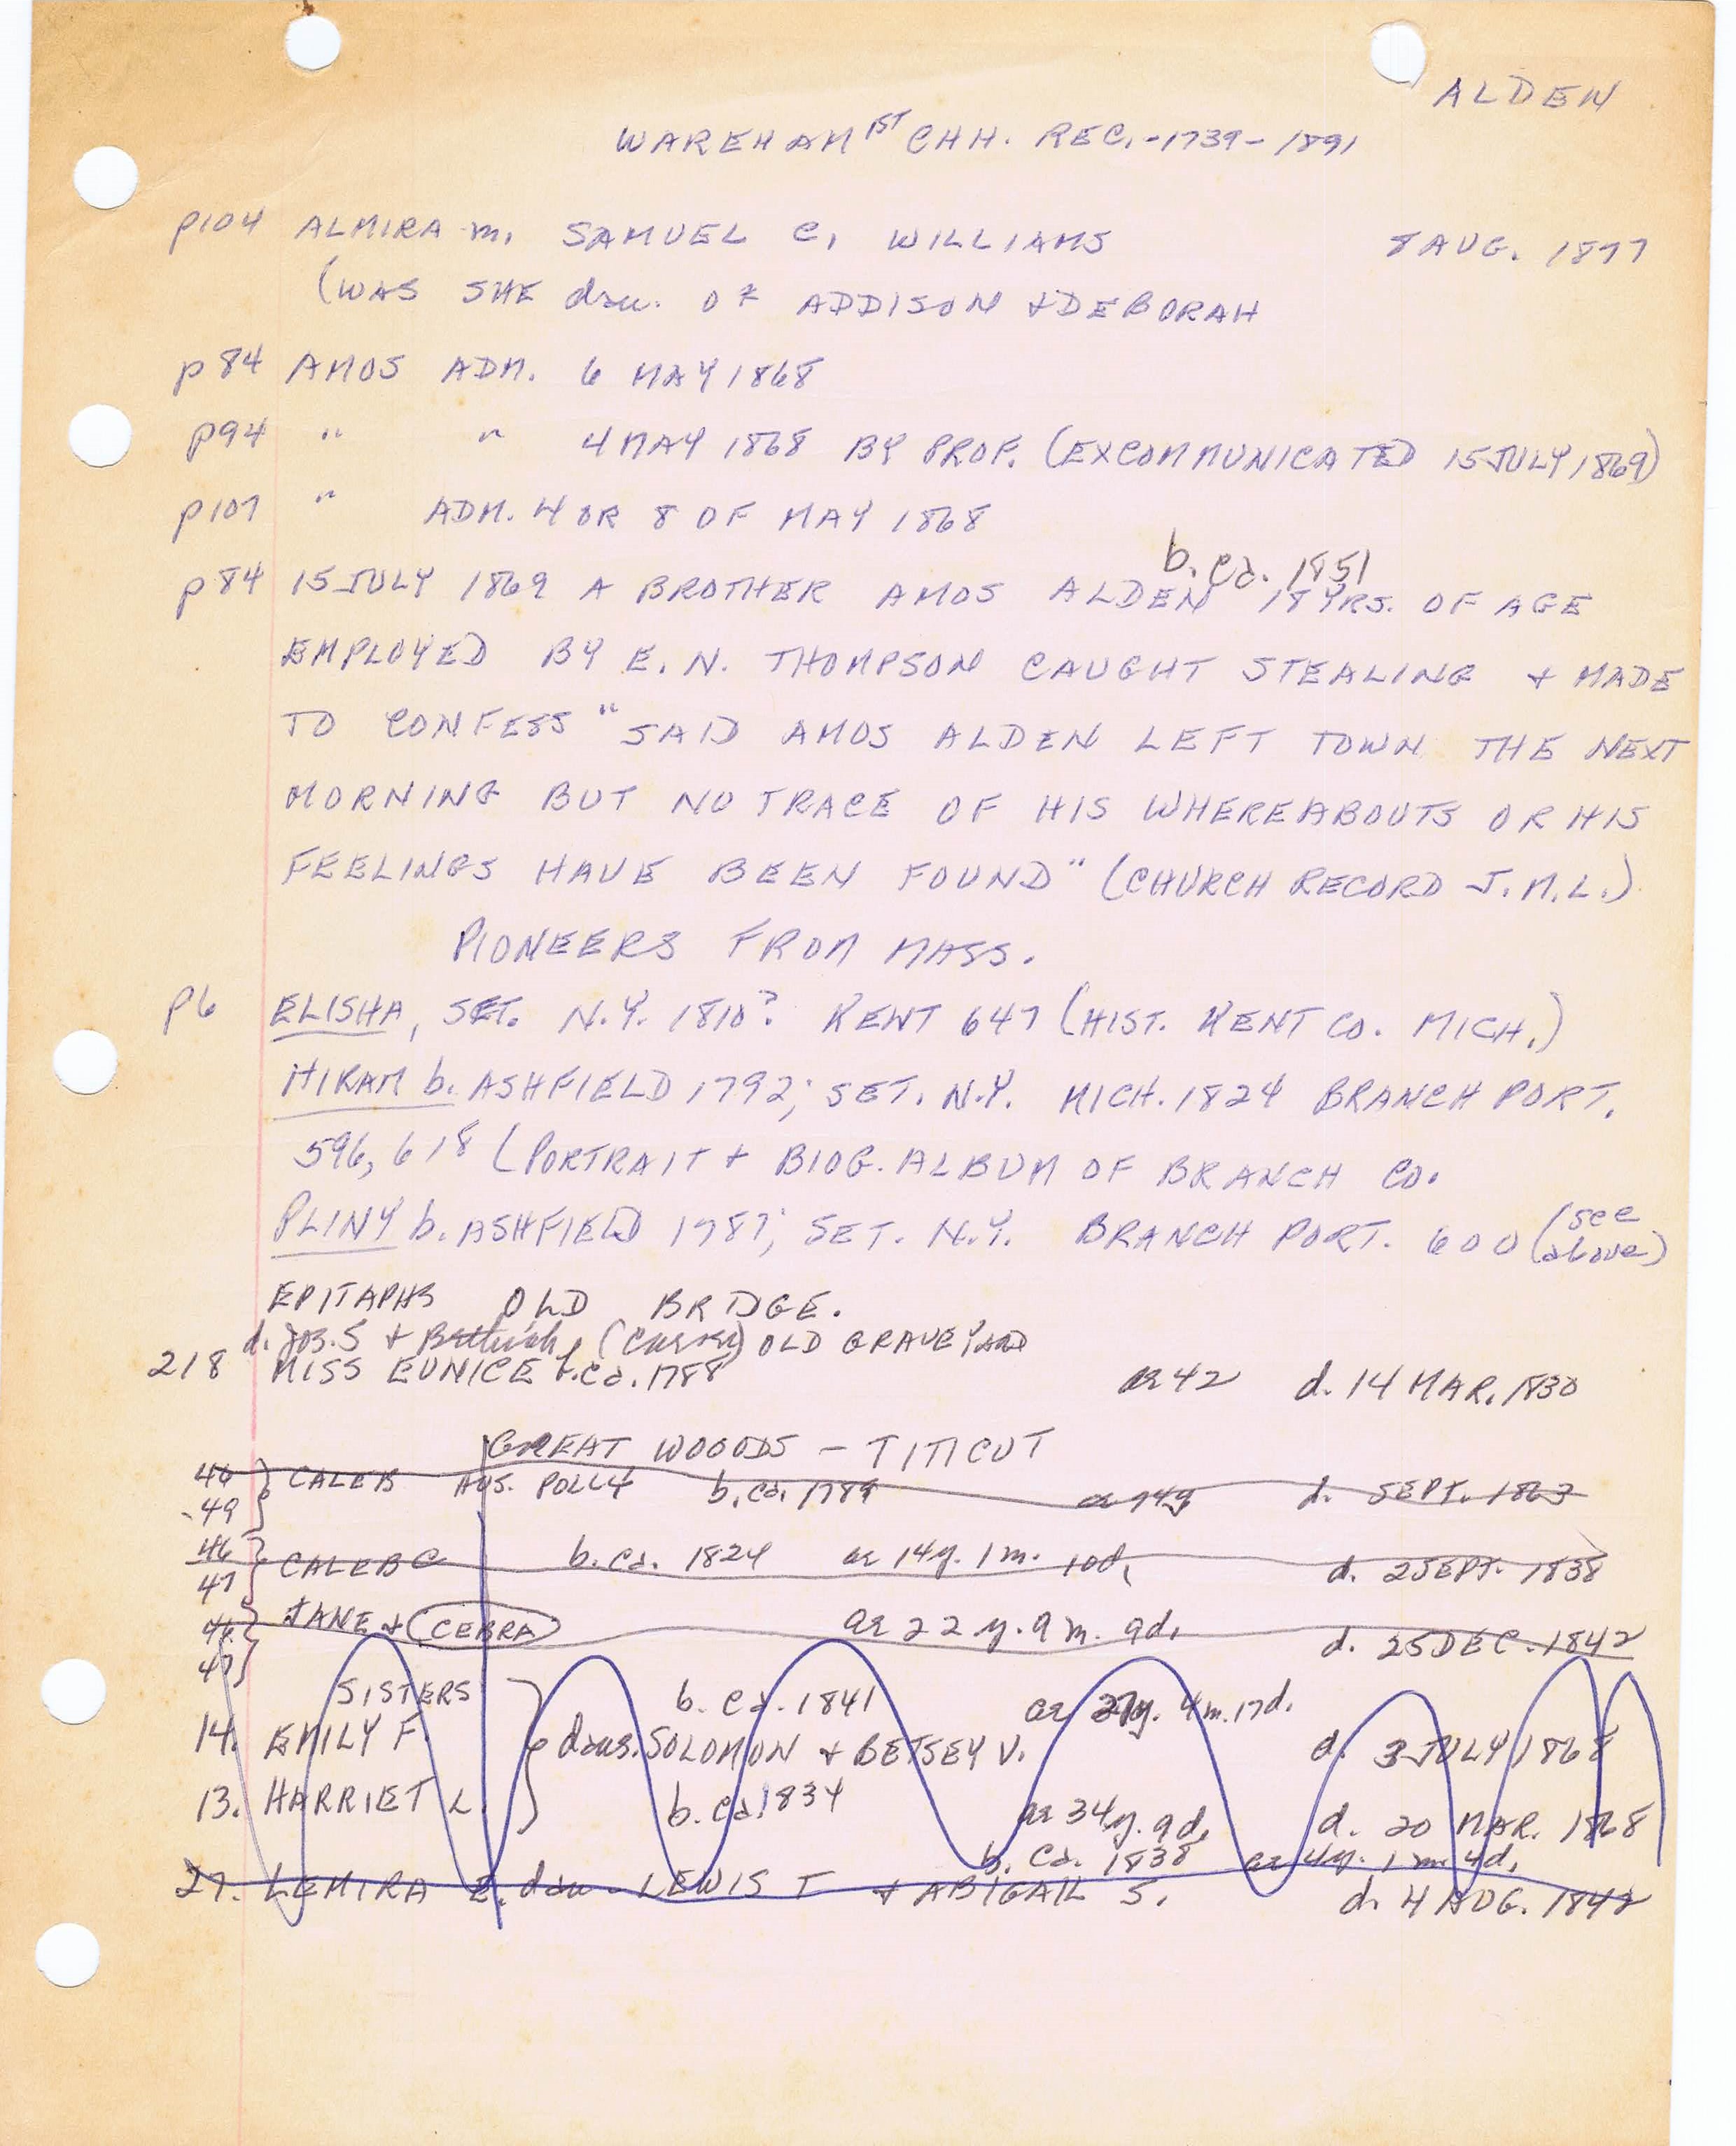 ALDEN
WAREHAM 1ST CHH. REC. -1739-1891
p104 ALMIRA m. SAMUEL C. WILLIAMS 8 AUG. 1877
(WAS SHE dau. OF ADDISON + DEBORAH
p 84 AMOS ADM. 6 MAY 1868
p94 " " 4 MAY 1868 BY PROF. (EXCOMMUNICATED 15 JULY 1869)
p107 " ADM. 4 OR 8 OF MAY 1868
b. ca. 1851
p 84 15 JULY 1869 A BROTHER AMOS ALDEN 18 YRS. OF AGE
EMPLOYED BY E. N. THOMPSON CAUGHT STEALING + MADE
TO CONFESS "SAID AMOS ALDEN LEFT TOWN THE NEXT
MORNING BUT NO TRACE OF HIS WHEREABOUTS OR HIS
FEELINGS HAVE BEEN FOUND" (CHURCH RECORD J.M.L.)
PIONEERS FROM MASS.
p6 ELISHA, SET. N.Y. 1810? KENT 647 (HIST. KENT CO. MICH.)
HIRAM b. ASHFIELD 1792; SET. N.Y. MICH. 1824 BRANCH PORT.
596, 618 (PORTRAIT + BIOG. ALBUM OF BRANCH CO.
PLINY b. ASHFIELD 1787; SET. N.Y. BRANCH PORT. 600 (see above)
EPITAPHS OLD BRIDGE.
d. Jos. S + (Carver) OLD GRAVEYARD
218 MISS EUNICE b. ca. 1788 ae 42 d. 14 MAR. 1830
GREAT WOOODS - TITICUT
48 49 } CALEB HUS. POLLY b. ca. 1789 ae 74y d. SEPT. 1863
46 47 } CALEB C b. ca. 1824 ae 14y. 1m. 10d. d. 2 SEPT. 1838
46. 47 } JANE + CEBRA ae 22 y. 9 m. 9d. d. 25 DEC. 1842
SISTERS b. ca. 1841 ae 27y. 4m. 17d.
14. EMILY F. } daus. SOLOMON + BETSEY V. d. 3 JULY 1868
13. HARRIET L b. ca 1834 ae 34y. 9d. d. 20 MAR. 1868
b. ca. 1838 ae 4y. 1m. 4d.
27. LEMIRA E. dau. LEWIS T + ABIGAIL S. d. 4 AUG. 1842